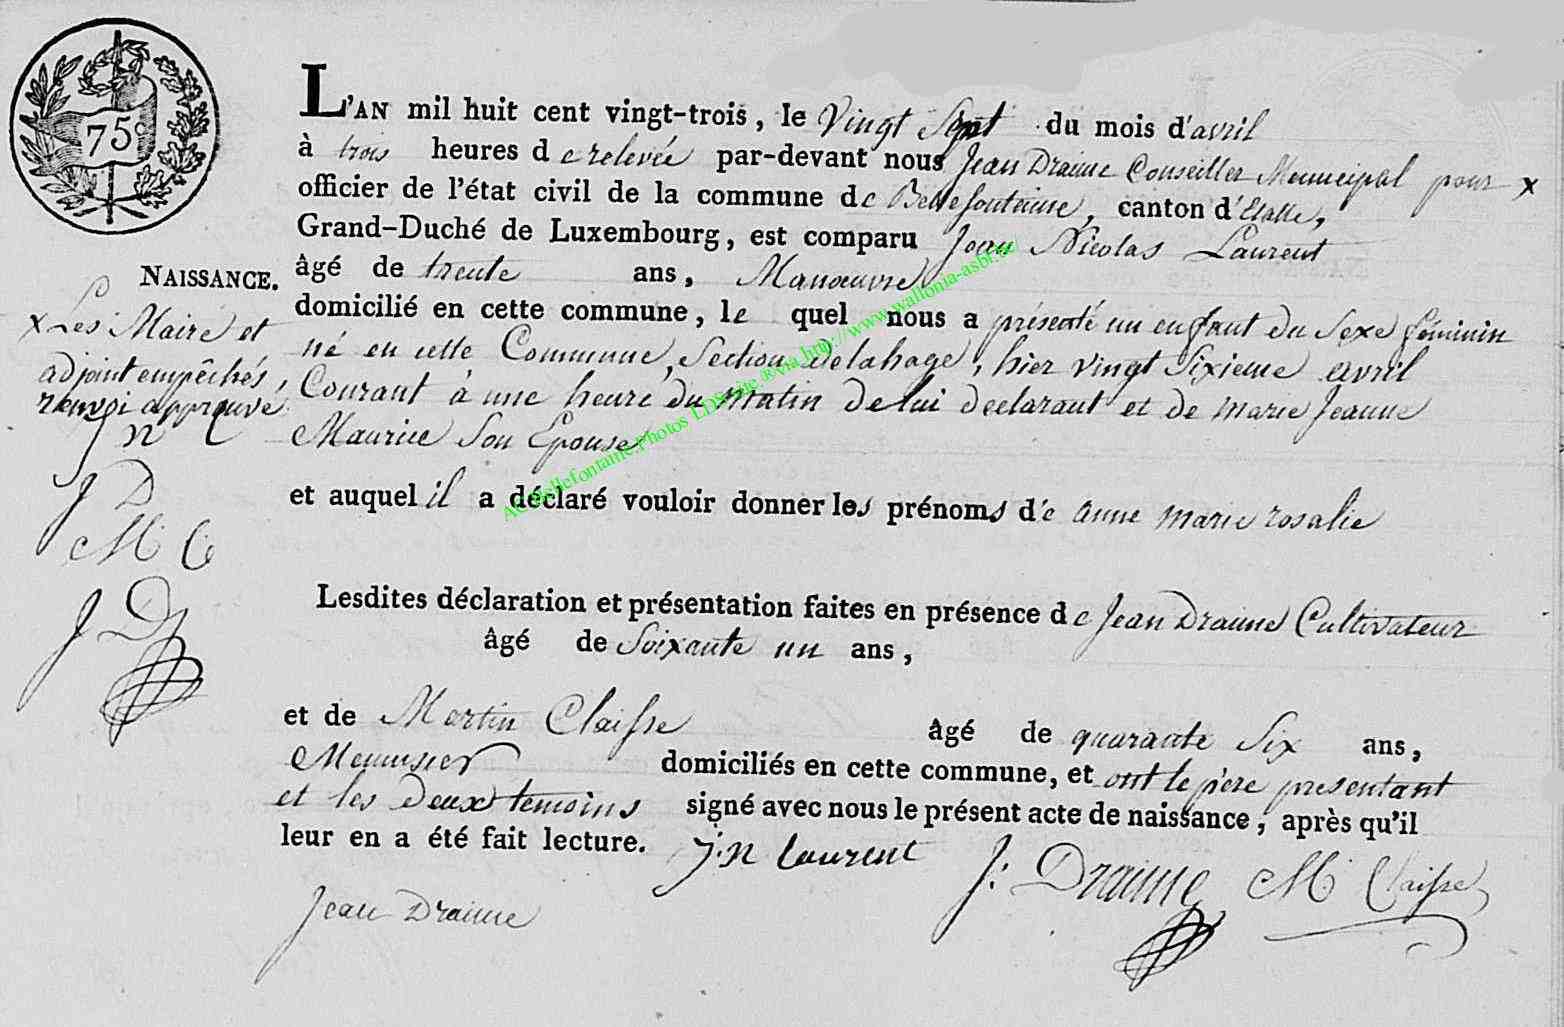 75c
L'AN mil huit cent vingt-trois, le Vingt Sept du mois d'avril
à trois heures de relevée par-devant nous Jean Draime Conseiller Municipal pour x
officier de l'état civil de la commune de Bellefontaine, canton d'Etalle,
Grand-Duché de Luxembourg, est comparu Jean Nicolas Laurent
NAISSANCE.
âgé de trente ans, Manoeuvre
domicilié en cette commune, le quel nous a présenté un enfant du Sexe féminin
né en cette Commune, Section delahage, hier vingt Sixieme avril
Courant à une heure du matin de lui declarant et de marie Jeanne
Maurice Son Epouse
x Les Maire et
adjoint empêchés,
renvoi approuvé
J n L
J D
M C
J D
et auquel il a déclaré vouloir donner les prénoms de anne marie rosalie
Lesdites déclaration et présentation faites en présence de Jean Draime Cultivateur
âgé de Soixante un ans,
et de Martin Claisse âgé de quarante Six ans,
Menuisier domiciliés en cette commune, et ont le père présentant
et les deux temoins signé avec nous le présent acte de naissance, après qu'il
leur en a été fait lecture. j.n laurent J: Draime M Claisse
Jean Draime